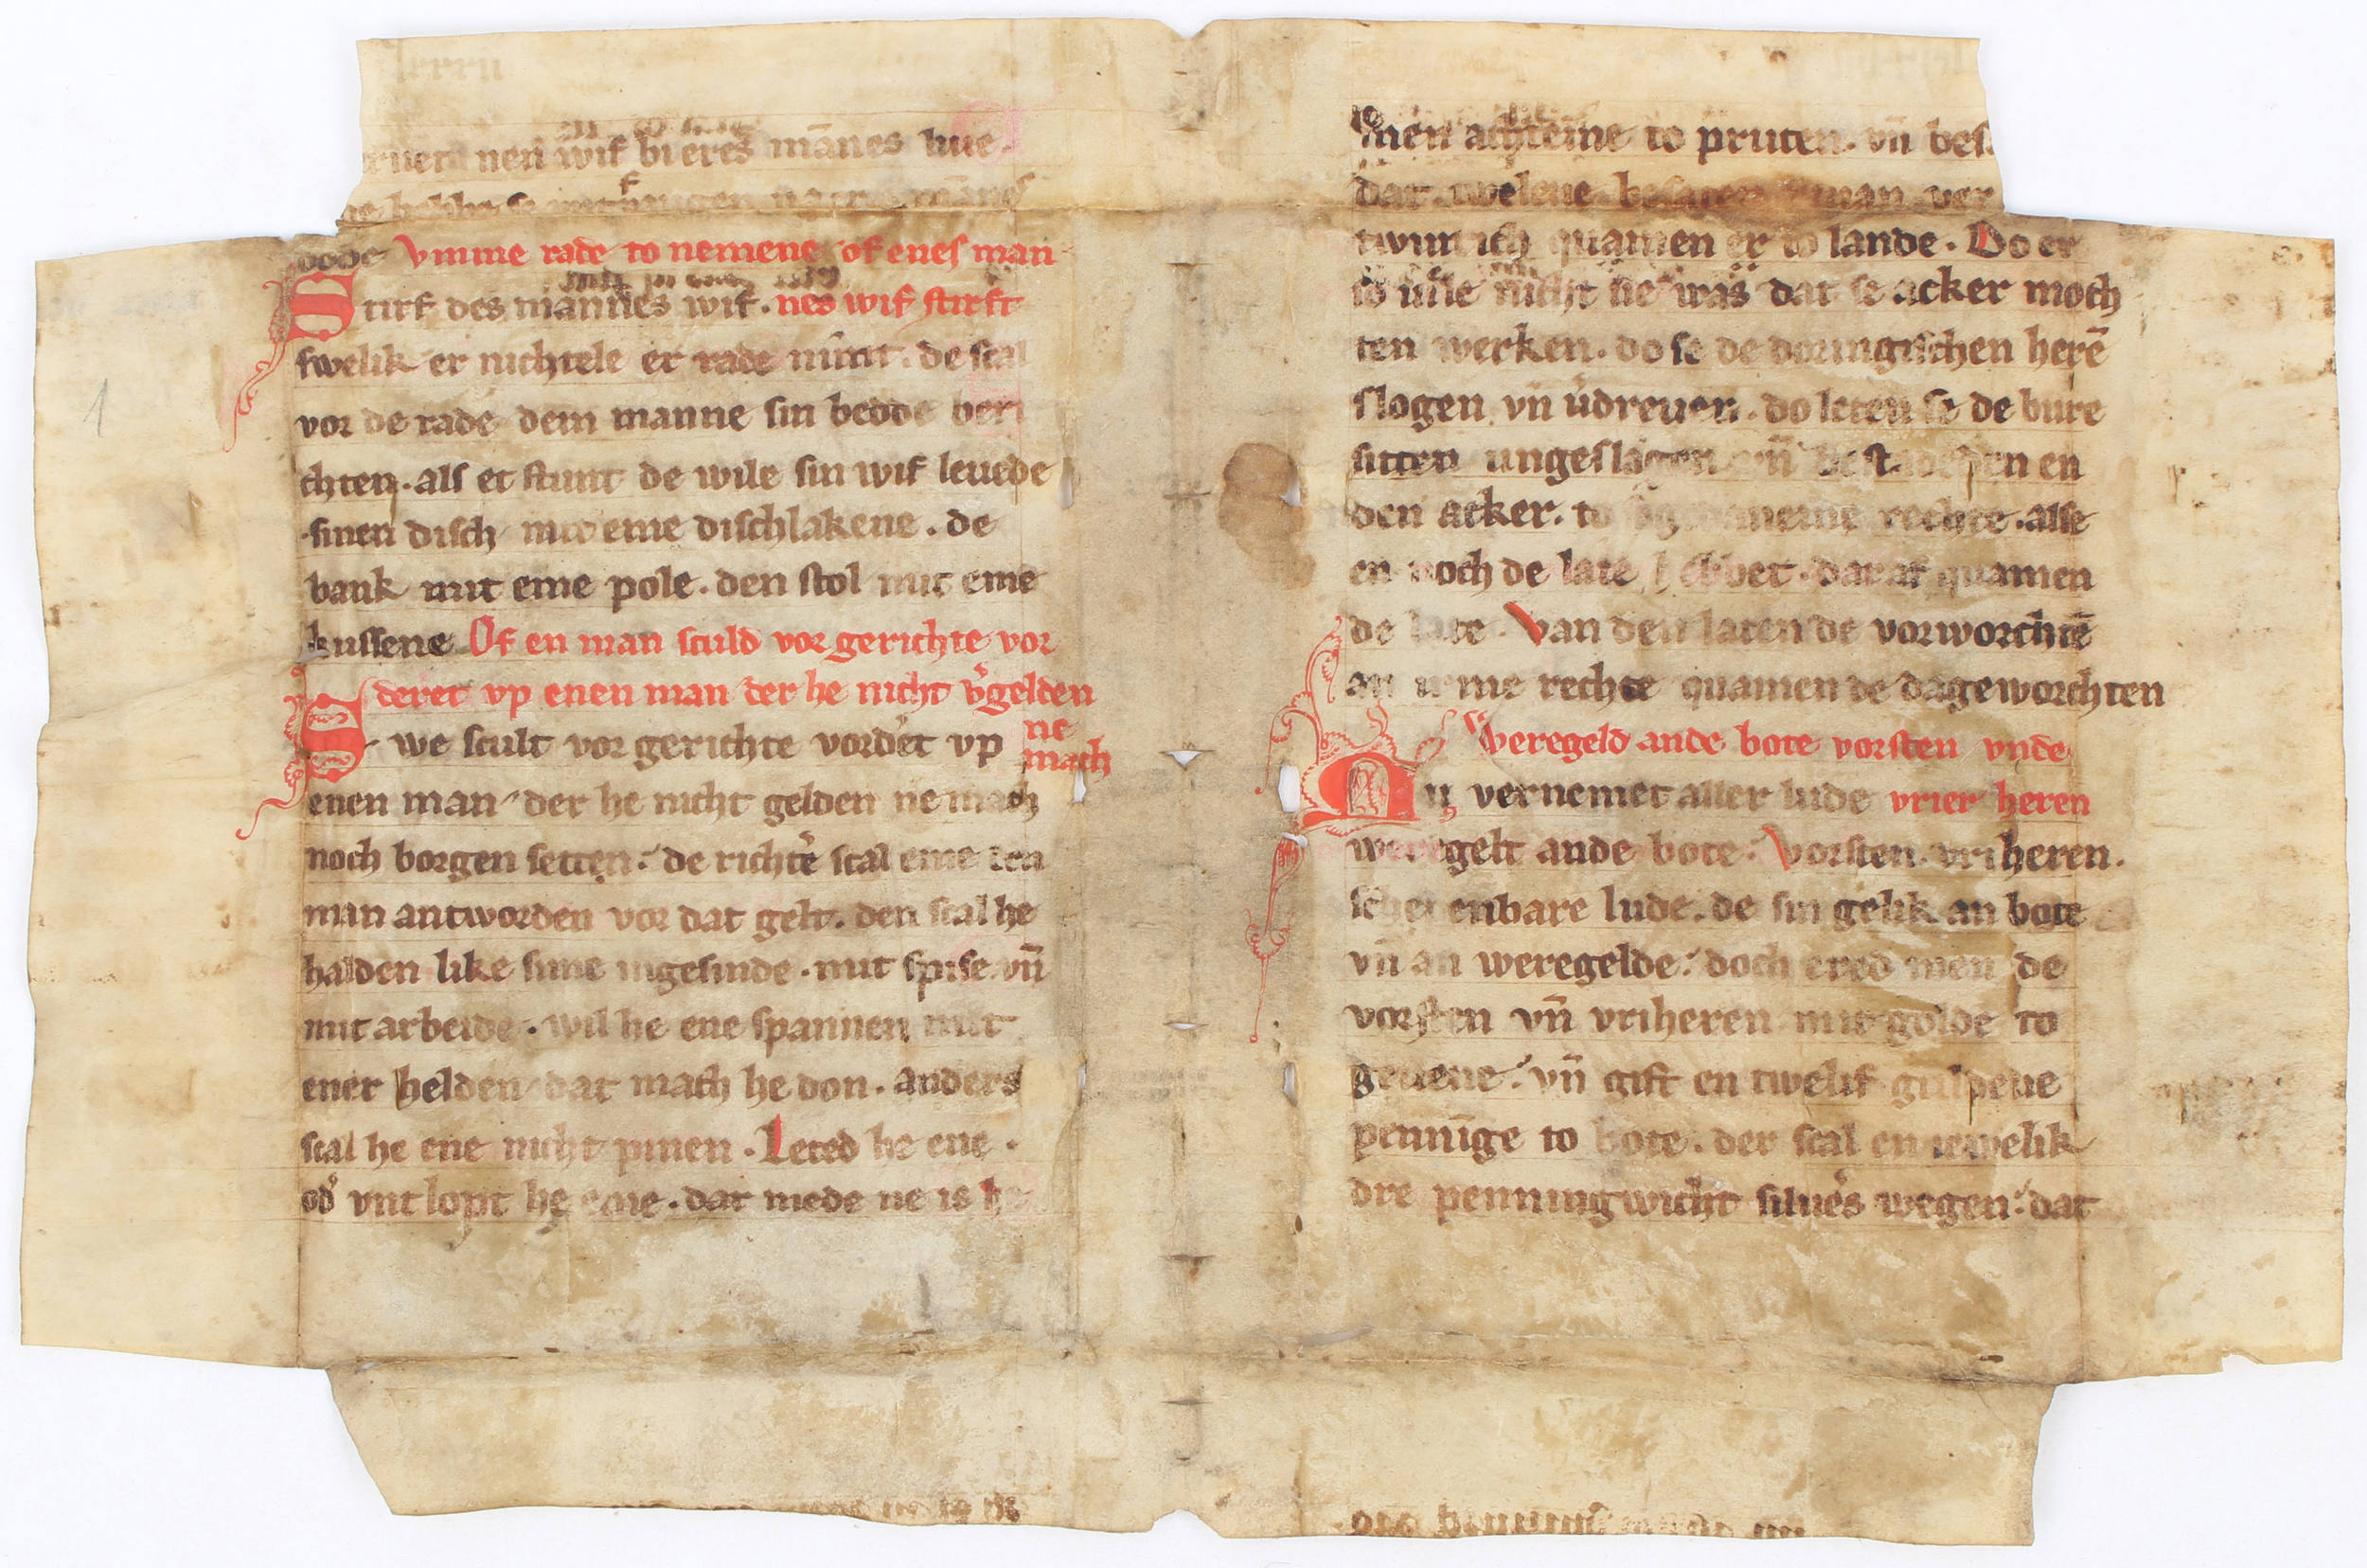 nen wif bi eres mānes liue.
dode Vmme rade to nemene of enes man
Stirf des mannes wif. nes wif stirft
swelik er nichtele er rade nimt. de scal
vor de rade dem manne sin bedde beri
chten. als et stunt de wile sin wif leuede
sinen disch mit eme dischlakene. de
bank mit eme pole. den stol mit eme
kussene Of en man sculd vor gerichte vor
deret vp enen man der he nicht v̾gelden
Swe scult vor gerichte vord̾et vp ne
mach
enen man der he nicht gelden ne mach
noch borgen setten. de richt̾e scal eme den
man antworden vor dat gelt. den scal he
halden like sime ingesinde. mit spise vn̄
mit arbeide. wil he ene spannen mit
ener helden dat mach he don. anders
scal he ene nicht pinen. Leted he ene.
od̾ vntlopt he eme. dat mede ne is he
men to pruten. vn̄ bes
dat man ver
quamen er to lande. Do er
so nicht ne was dat se acker moch
ten werken. do se de doringischen herē
slogen vn̄ v̾dreuen. do leten se de bure
sitten ungeslagen vn̄ bestadeden en
den acker. to rechte. alse
en noch de late hebbet. dar af quamen
de late. Van den laten de vorworchtē
an rechte quamen de dageworchten
Weregeld ande bote vorsten vnde
Nu vernemet aller lude vrier heren
weregelt ande bote. Vorsten. vriheren.
schepenbare lude. de sin gelik an bote
vn̄ an weregelde. doch ered men de
vorsten vn̄ vriheren mit golde to
geuene. vn̄ gift en twelif guldene
pennīge to bote. der scal en iewelik
dre penning wicht silu̾es wegen. dat